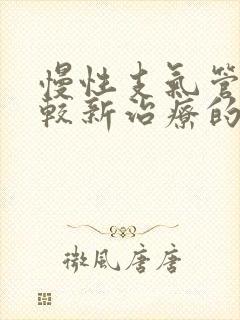 慢性支氣管
較新治療的
微風唐唐